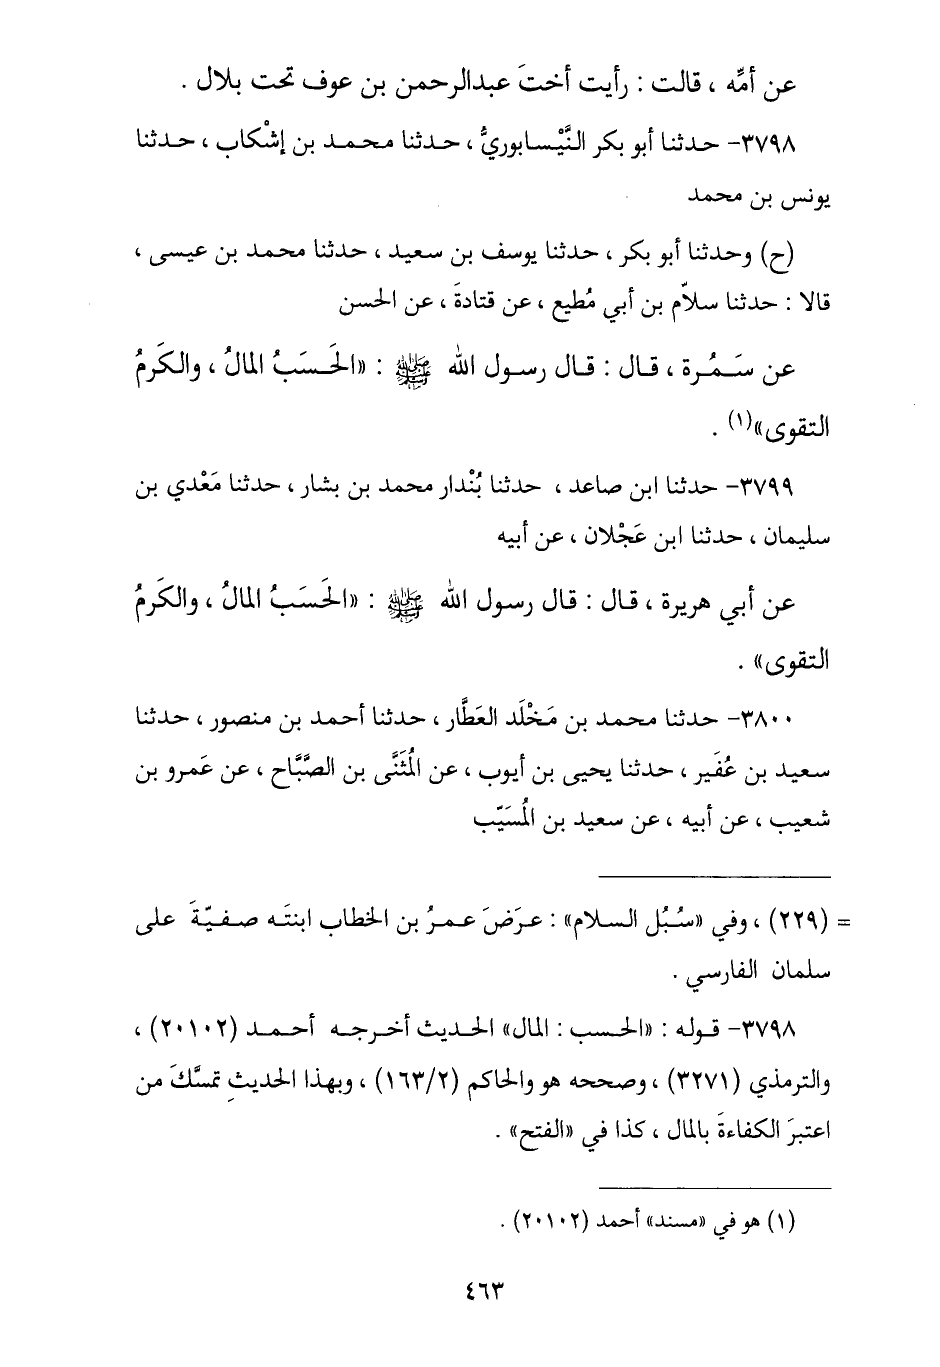 عن أمِّه ، قالت : رأيت أختَ عبدالرحمن بن عوف تحت بلال .
٣٧٩٨- حدثنا أبو بكر النَّيْسابوريُّ ، حدثنا محمد بن إشْكاب ، حدثنا
يونس بن محمد
(ح) وحدثنا أبو بكر ، حدثنا يوسف بن سعيد ، حدثنا محمد بن عيسى ،
قالا : حدثنا سلاّم بن أبي مُطيع ، عن قتادةَ ، عن الحسن
عن سَمُرة ، قال : قال رسول الله ﷺ : «الحَسَبُ المالُ ، والكَرمُ
التقوى»(١) .
٣٧٩٩- حدثنا ابن صاعد ، حدثنا بُنْدار محمد بن بشار ، حدثنا مَعْدي بن
سليمان ، حدثنا ابن عَجْلان ، عن أبيه
عن أبي هريرة ، قال : قال رسول الله ﷺ : «الحَسَبُ المالُ ، والكَرمُ
التقوى» .
٣٨٠٠- حدثنا محمد بن مَخْلَد العَطَّار ، حدثنا أحمد بن منصور ، حدثنا
سعيد بن عُفَير ، حدثنا يحيى بن أيوب ، عن المُثَنَّى بن الصَّبَّاح ، عن عَمرو بن
شعيب ، عن أبيه ، عن سعيد بن المُسَيّب
= (٢٢٩) ، وفي «سُبُل السلام» : عرَضَ عمرُ بن الخطاب ابنتَه صفيّةَ على
سلمان الفارسي .
٣٧٩٨- قوله : «الحسب : المال» الحديث أخرجه أحمد (٢٠١٠٢) ،
والترمذي (٣٢٧١) ، وصححه هو والحاكم (١٦٣/٢) ، وبهذا الحديث تمسَّكَ من
اعتبرَ الكفاءةَ بالمال ، كذا في «الفتح» .
(١) هو في «مسند» أحمد (٢٠١٠٢) .
٤٦٣